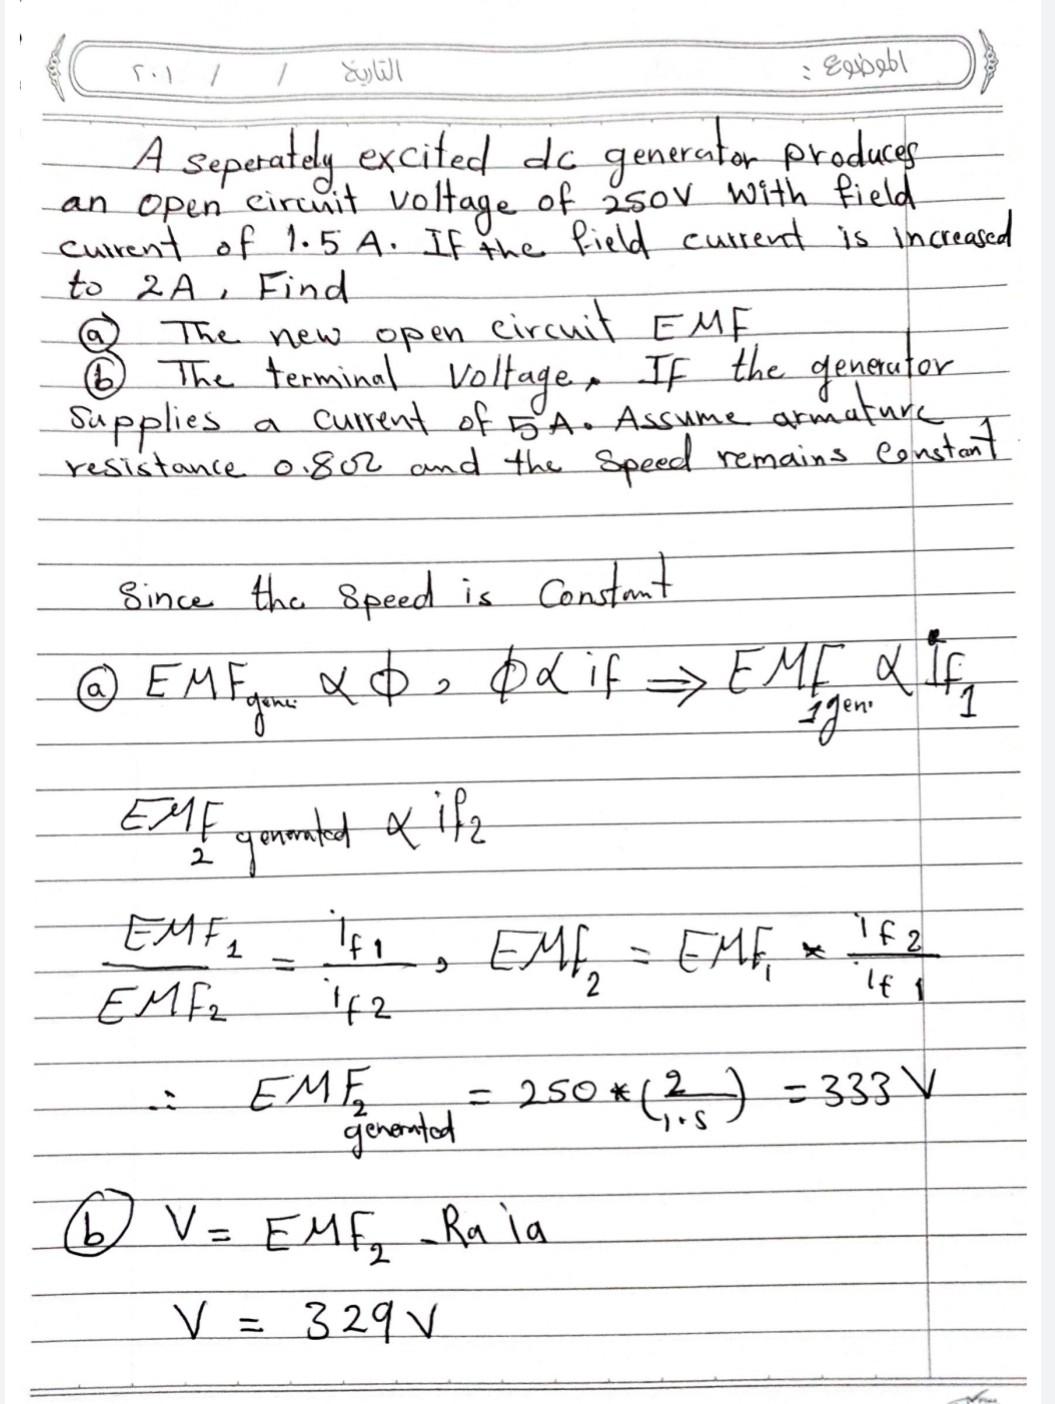 الموضوع : التاريخ / / ٢٠١
A seperately excited dc generator produces
an open circuit voltage of 250V with field
current of 1.5 A. If the field current is increased
to 2A, Find
(a) The new open circuit EMF
(b) The terminal voltage, If the generator
supplies a current of 5A. Assume armature
resistance 0.80Ω and the speed remains constant
Since the speed is constant
(a) EMF gene. α ϕ, ϕ α if ⇒ EMF 1gen. α If1
EMF2 generated α if2
EMF1 / EMF2 = if1 / if2, EMF2 = EMF1 * if2 / if1
∴ EMF2 generated = 250 * (2 / 1.5) = 333 V
(b) V = EMF2 - Ra ia
V = 329 V